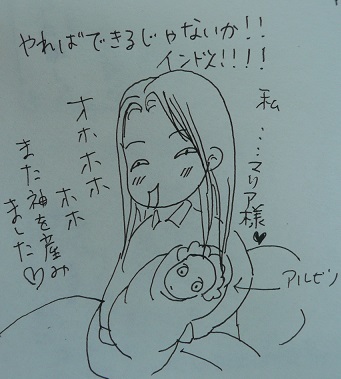 やればできるじゃないか!!
インド人!!!!
私…マリア様♥
オホホホ
ホホ
また神を産み
ました♡
アルビン